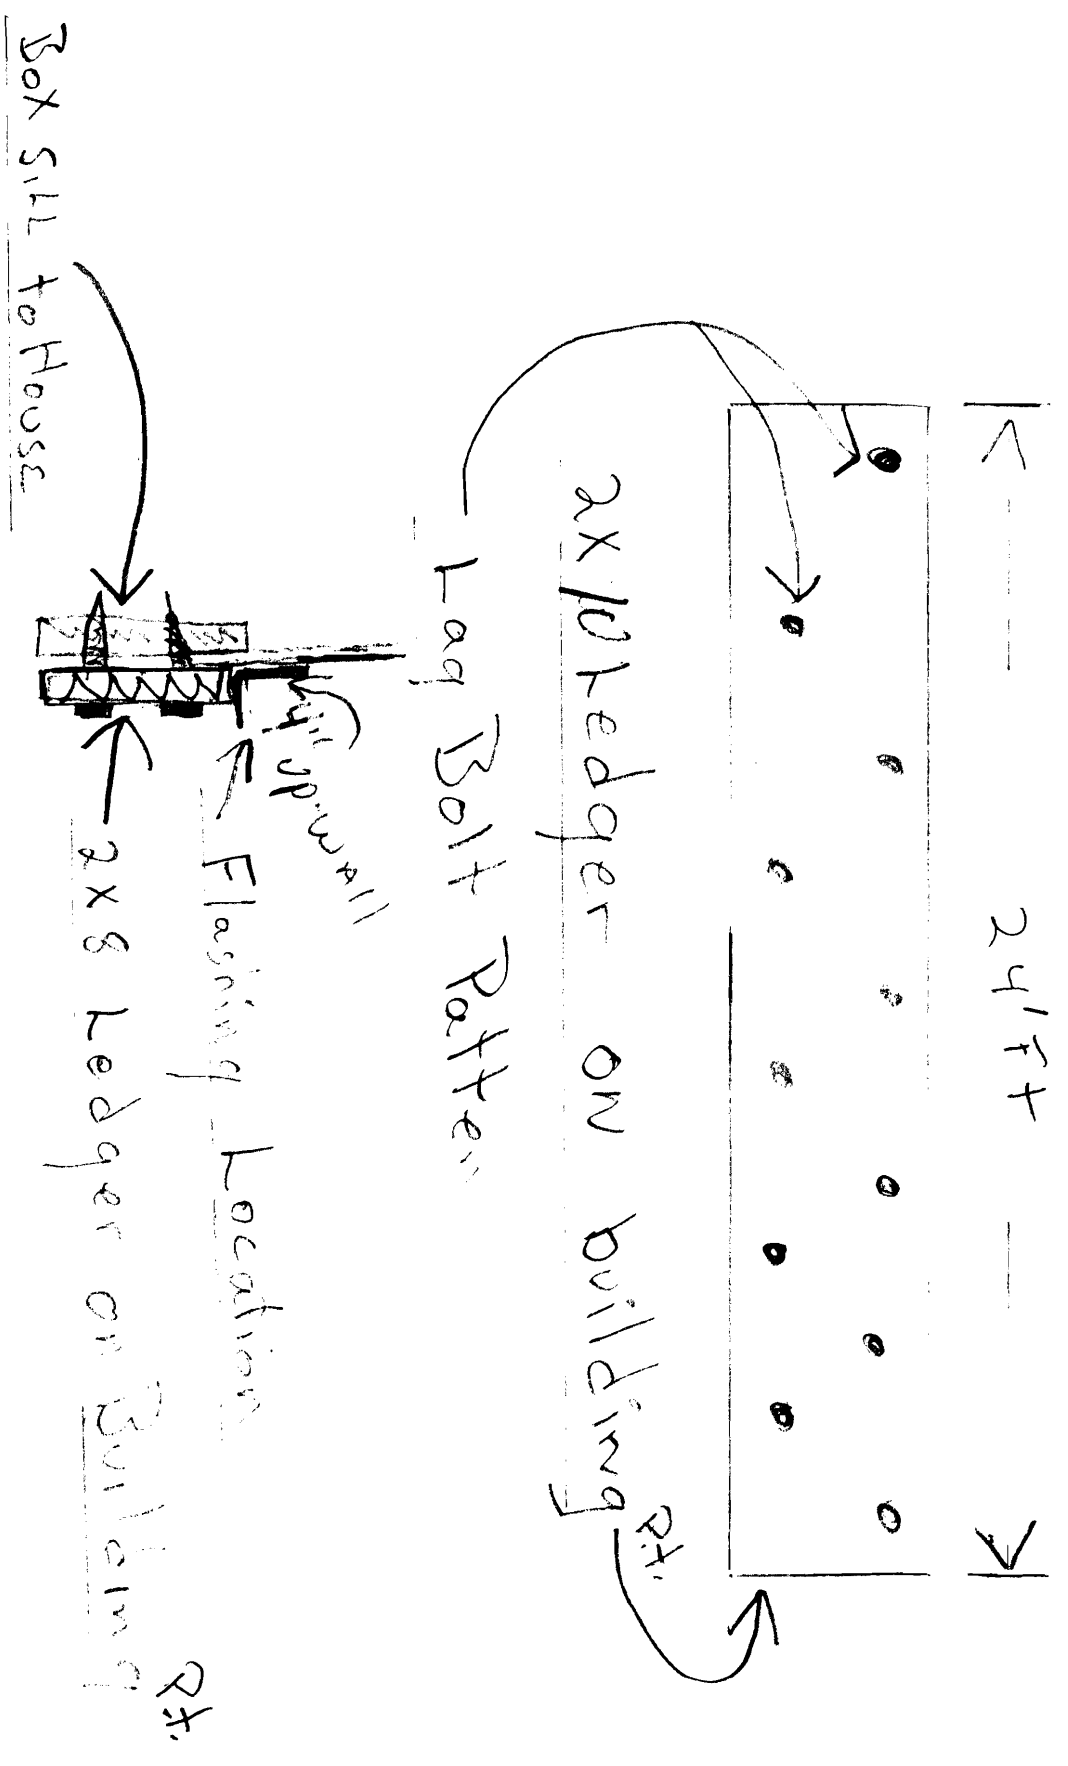 24' Ft
2x10 Ledger on building
P.t.
Lag Bolt Pattern
4" up wall
Flashing Location
2x8 Ledger on Building
P.t.
Box Sill to House